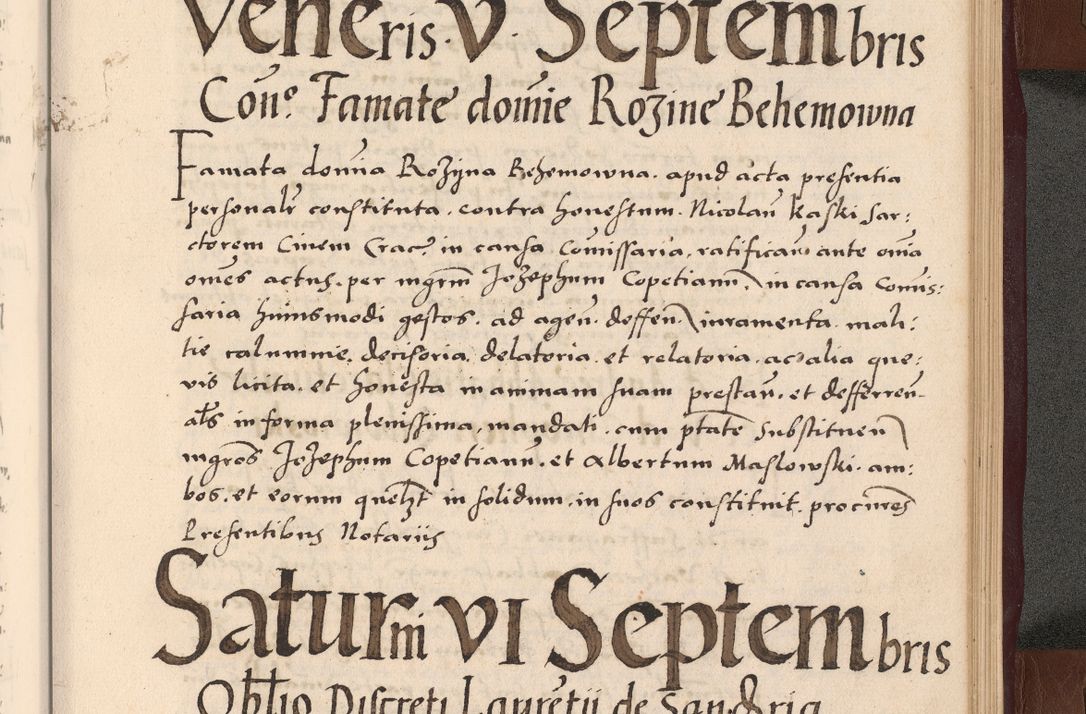 Veneris · V · Septembris
Coñ. Famate domie Rozine Behemowna
Famata domina Rozyna Behemowna. apud acta presentia
personalr constituta. contra honestum. Nicolaū Kaski Sar:
ctorem Civem Crac. in causa Comissaria, ratificaū ante omia
omēs actus. per mgrm Jozephum Copetianū, in causa Comis:
saria huiusmodi gestos. ad agen. deffen iuramenta. mali:
tie calumnie. decisoria. delatoria. et relatoria. ac alia que:
vis licita. et honesta in animam suam prestan. et defferren.
als in forma plenissima, mandati. cum ptate Substituen
mgros Jozephum Copetianū. et Albertum Maslowski. am:
bos. et eorum quelzt in solidum. in suos constituit. procures
Presentibus Notariis
Saturni VI Septembris
Obltio Discreti Laurētii de Sandria